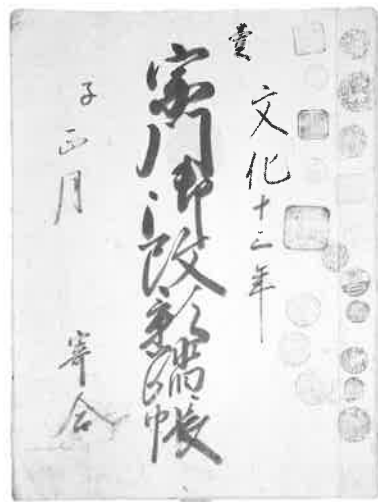 壹
文化十三年
宗門御改影踏帳
子正月
寄合